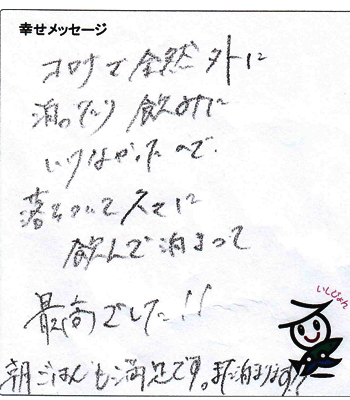 幸せメッセージ
コロナで全然外に
泊ったり飲みに
いけなかったので、
落ちついて久々に
飲んで泊まって
最高でした!!
いしぴょん
朝ごはんも満足です。また泊まります!!